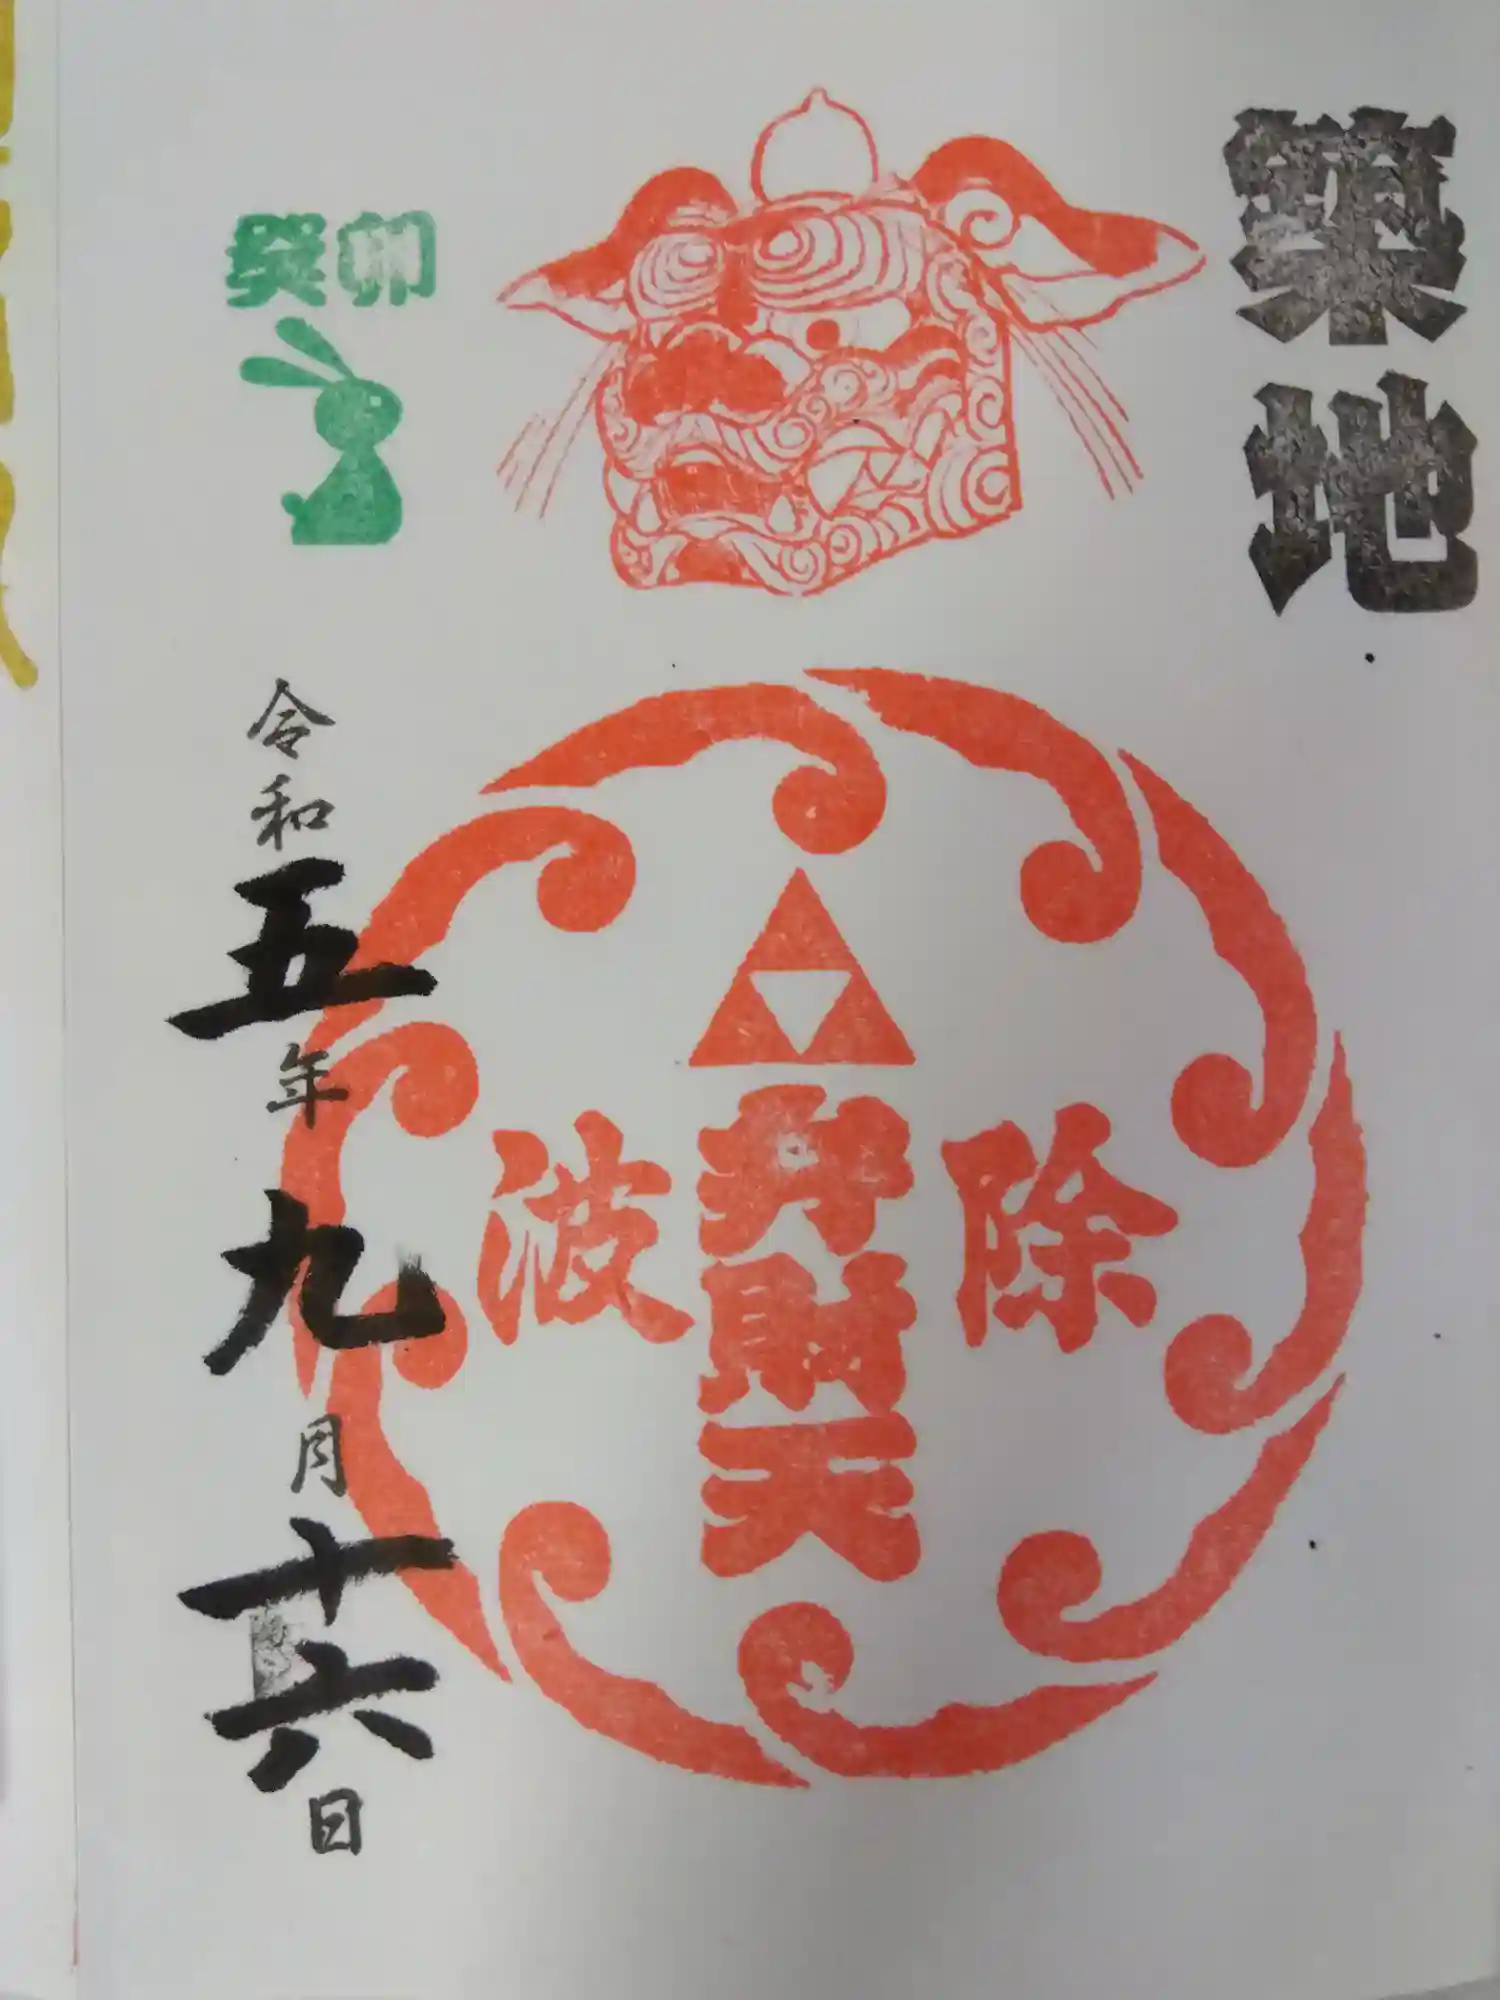 築地
除
弁財天
波
癸卯
令和五年九月十六日